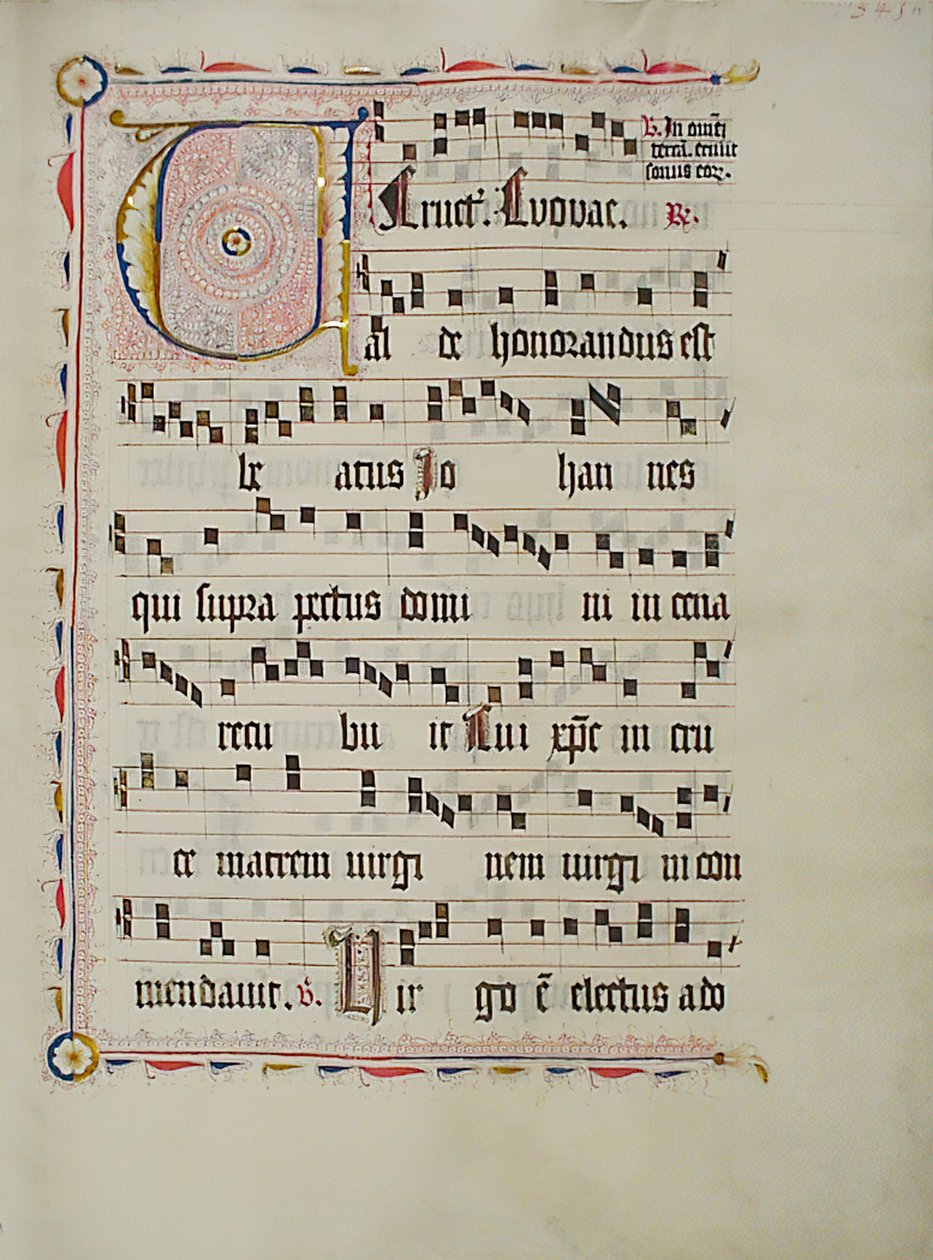 ℣. In om̄ē
terrā. exiuit
sonus eoꝝ.
Fruct᷒. Evovae. ℟.
Val de honorandus est
be atus Jo han nes
qui supra pectus domi ni in cena
recu bu it Cui xp̄c in cru
ce matrem uirgi nem uirgi ni con
mendauit. ℣. Uir go ē electus a do